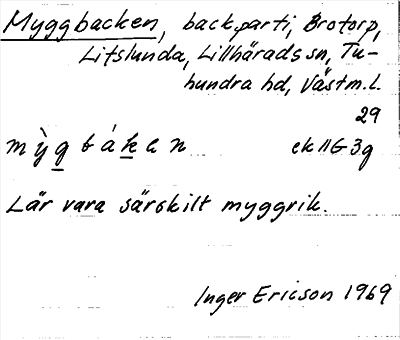 Myggbacken, backparti, Brotorp,
Litslunda, Lillhärads sn, Tu-
hundra hd, Västm.l.
29
mỳg bákεn ek 11G 3g
Lär vara särskilt myggrik.
Inger Ericson 1969